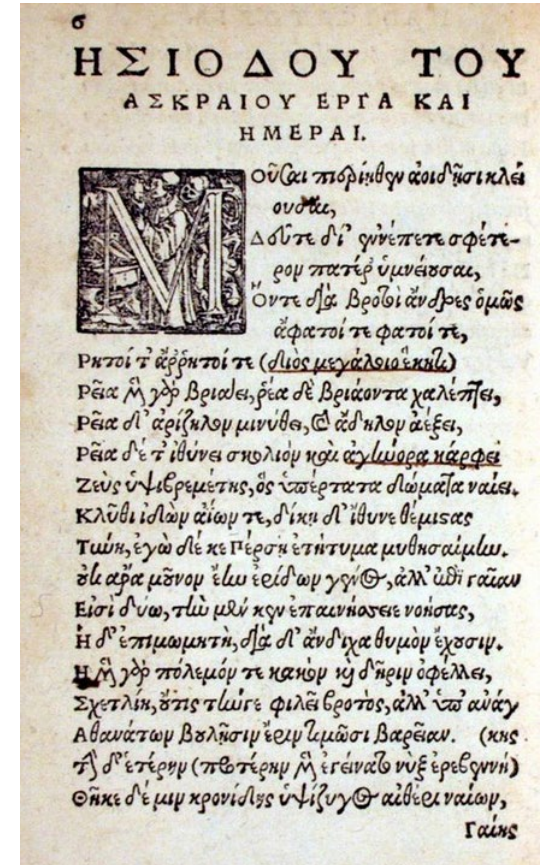 6
ΗΣΙΟΔΟΥ ΤΟΥ
ΑΣΚΡΑΙΟΥ ΕΡΓΑ ΚΑΙ
ΗΜΕΡΑΙ.
ΜΟῦσαι πιερίηθεν ἀοιδῇσι κλεί
ουσαι,
Δεῦτε δι' ἐννέπετε σφέτε-
ρον πατέρ' ὑμνείουσαι,
Ὅντε διὰ βροτοὶ ἄνδρες ὁμῶς
ἄφατοί τε φατοί τε,
Ρητοί τ' ἄρρητοί τε (διὸς μεγάλοιο ἕκητι)
Ρεῖα μὲν γὰρ βριάει, ῥέα δὲ βριάοντα χαλέπτει,
Ρεῖα δ' ἀρίζηλον μινύθει, καὶ ἄδηλον ἀέξει,
Ρεῖα δέ τ' ἰθύνει σκολιὸν καὶ ἀγήνορα κάρφει
Ζεὺς ὑψιβρεμέτης, ὃς ὑπέρτατα δώματα ναίει.
Κλῦθι ἰδὼν ἀΐων τε, δίκῃ δ' ἴθυνε θέμιστας
Τύνη, ἐγὼ δέ κε Πέρσῃ ἐτήτυμα μυθησαίμην.
οὐκ ἄρα μοῦνον ἔην ἐρίδων γένος, ἀλλ' ἐπὶ γαῖαν
Εἰσὶ δύω, τὴν μέν κεν ἐπαινήσειε νοήσας,
Η δ' ἐπιμωμητὴ, διὰ δ' ἄνδιχα θυμὸν ἔχουσιν.
Η μὲν γὰρ πόλεμόν τε κακὸν καὶ δῆριν ὀφέλλει,
Σχετλίη, οὔτις τήνγε φιλεῖ βροτὸς, ἀλλ' ὑπ' ἀνάγ
Αθανάτων βουλῇσιν ἔριν τιμῶσι βαρεῖαν. (κης
τὴν δ' ἑτέρην (προτέρην μὲν ἐγείνατο νὺξ ἐρεβεννή)
Θῆκε δέ μιν κρονίδης ὑψίζυγος αἰθέρι ναίων,
Γαίης